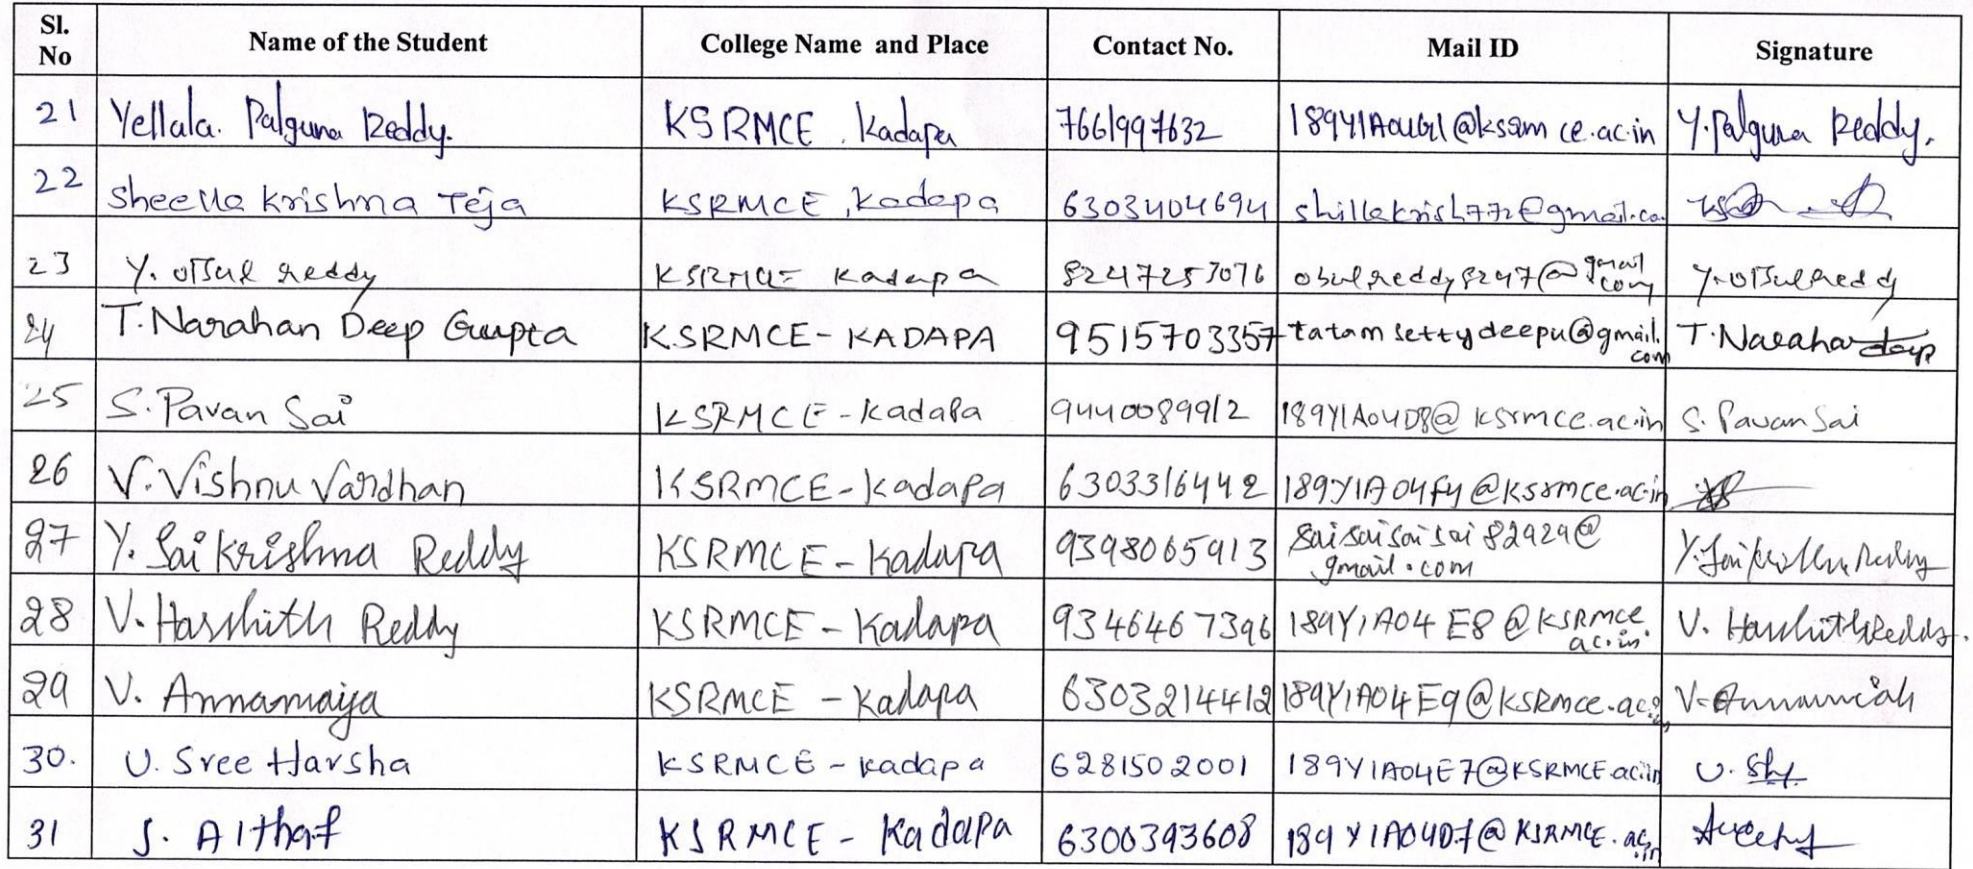 Sl. No Name of the Student College Name and Place Contact No. Mail ID Signature
21 Yellala. Palguna Reddy. KSRMCE, Kadapa 7661997632 189Y1A04G1@ksrmce.ac.in Y.Palguna Reddy.
22 Sheella Krishna Teja KSRMCE, Kadapa 6303404694 shillakrish772@gmail.co
23 Y. obul reddy KSRMCE Kadapa 8247253076 obulreddy8247@gmail com Y.obulreddy
24 T.Narahan Deep Gupta KSRMCE-KADAPA 9515703357 tatamsettydeepu@gmail.com T.Narahandeep
25 S.Pavan Sai KSRMCE-Kadapa 9440089912 189Y1A04D8@ksrmce.ac.in S.Pavan Sai
26 V.Vishnu Vardhan KSRMCE-Kadapa 6303316442 189Y1A04F4@ksrmce.ac.in
27 Y. Sai Krishna Reddy KSRMCE-Kadapa 9398065913 saisaisaisai82929@ gmail.com Y.Saikrishna Reddy
28 V. Harshith Reddy KSRMCE-Kadapa 9346467396 189Y1A04E8@KSRMCE ac.in V. HarshithReddy.
29 V. Annamaiya KSRMCE-Kadapa 6303214412 189Y1A04E9@KSRmce.ac.in V.Annamaiah
30. U. Sree Harsha KSRMCE-Kadapa 6281502001 189Y1A04E7@KSRMCE.ac.in U.
31 S. Althaf KSRMCE-Kadapa 6300393608 189Y1A04D7@KSRMCE.ac.in